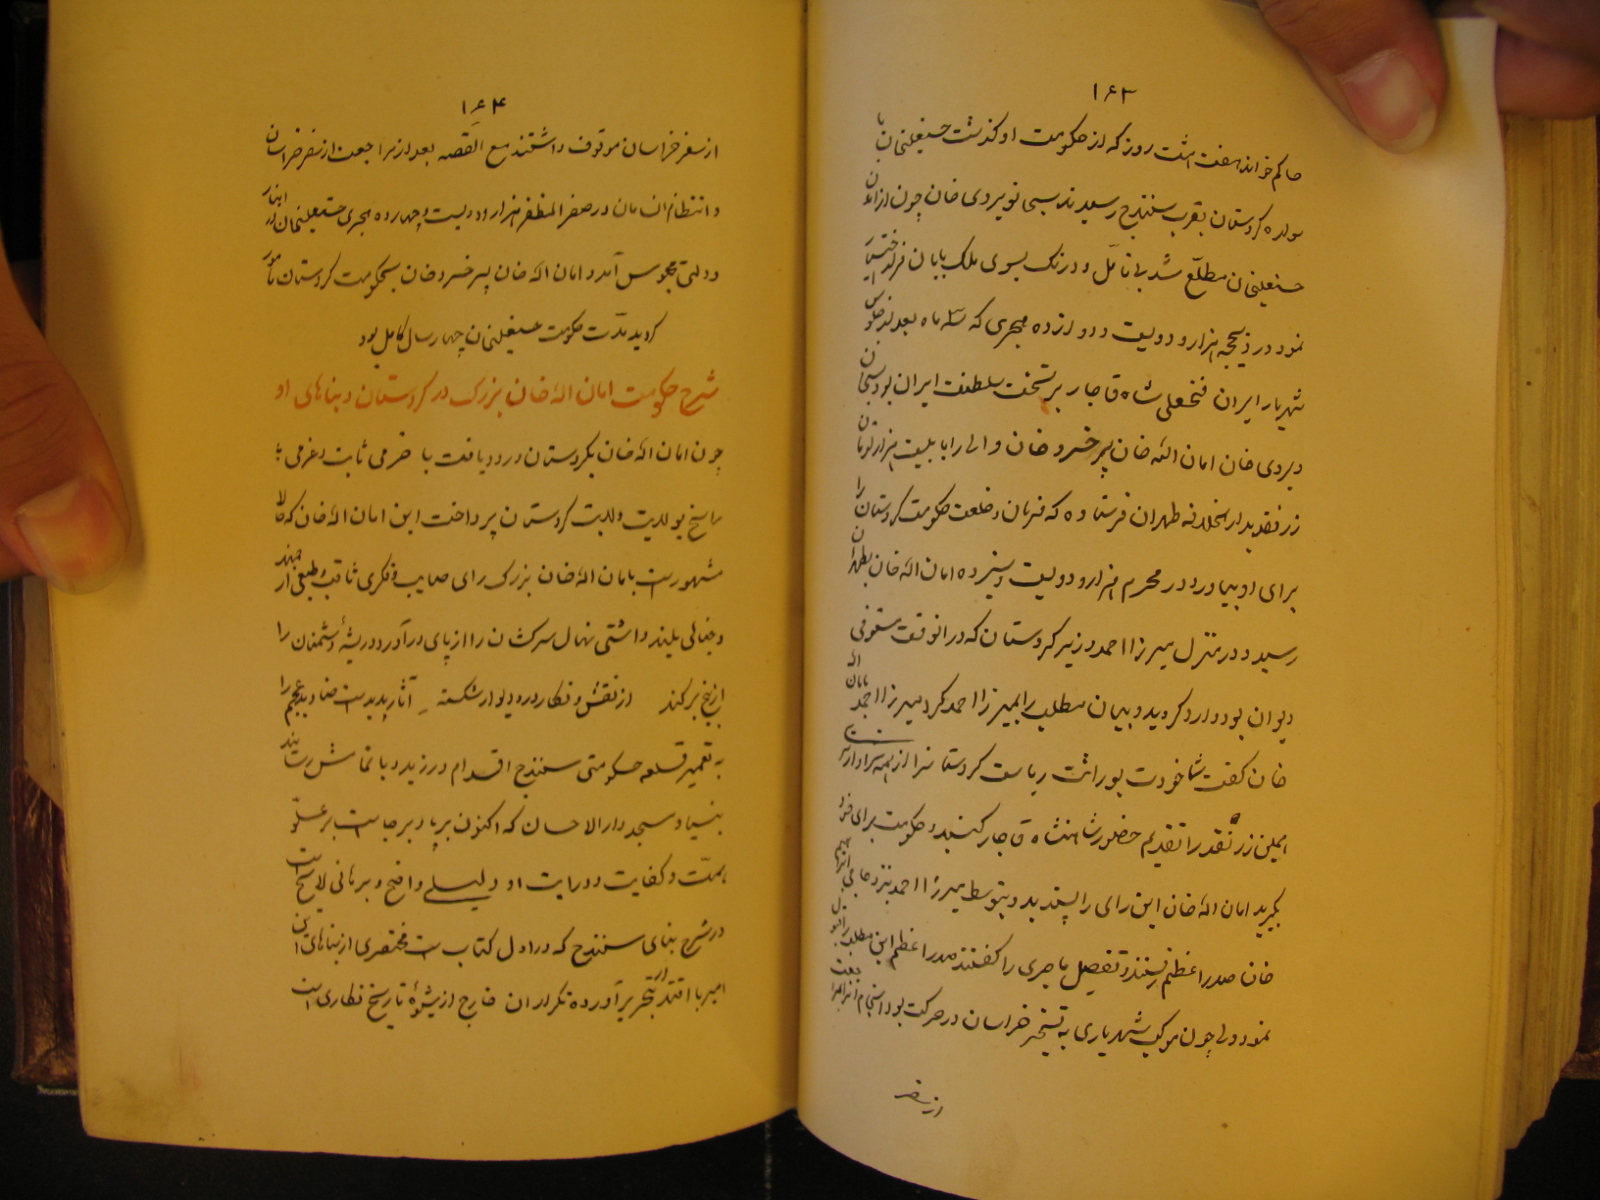 ۱۶۳
حاکم خواند هفت هشت روز که از حکومت او گذشت حسنعلیخان با
سواره کردستان بقرب سنندج رسید سبحان ویردی خان چون از آمدن
حسنعلیخان مطلع شد بی تأمل و درنگ بسوی ملک بابان فرار اختیار
نمود در ذیحجه هزار و دویست و دوازده هجری که سه ماه بعد از جلوس
شهریار ایران فتحعلی شاه قاجار بر تخت سلطنت ایران بود سبحان
ویردی خان امان الله خان پسر خسرو خان والی را با بیست هزار تومان
زر نقد بدار الخلافه طهران فرستاده که فرمان و خلعت حکومت کردستان را
برای او بیاورد در محرم هزار و دویست و سیزده امان الله خان بطهران
رسید و در منزل میرزا احمد وزیر کردستان که در آنوقت مستوفی
دیوان بود وارد گردید و بیان مطلب را بمیرزا احمد کرد میرزا احمد بامان الله
خان گفت شما خودت بوراثت ریاست کردستان را از همه سزاوارتر
همین زر نقد را تقدیم حضور شاهنشاه قاجار کنید و حکومت برای خود
بگیرید امان الله خان این رای را پسندید و بتوسط میرزا احمد نزد حاجی ابراهیم
خان صدر اعظم رفتند و تفصیل ماجری را گفتند صدر اعظم این مطلب را قبول
نمود ولی چون موکب شهریاری به تسخیر خراسان در حرکت بود انجام آنرا بمراجعت
از سفر
۱۶۴
از سفر خراسان موقوف داشتند مع القصه بعد از مراجعت از سفر خراسان
و انتظام آن سامان در صفر المظفر هزار و دویست و چهارده هجری حسنعلیخان در انبار
دولتی محبوس آمد و امان الله خان پسر خسرو خان بحکومت کردستان مأمور
گردید مدت حکومت حسنعلیخان چهار سال کامل بود
شرح حکومت امان الله خان بزرگ در کردستان و بناهای او
چون امان الله خان بکردستان ورود یافت با حزمی ثابت و عزمی
راسخ بولایت کردستان پرداخت این امان الله خان که حالا
مشهور است بامان الله خان بزرگ رای صایب و فکری ثاقب و طبعی ارجمند
و خیالی بلند داشتی نهال سرکشان را از پای در آورد و ریشهٔ دشمنان را
از بیخ برکند از نقش و نگار در و دیوار شکسته آثار پدید است صنادید عجم را
به تعمیر قلعه حکومتی سنندج اقدام ورزید و با تماش رسانید
بنیاد مسجد دار الاحسان که اکنون بر پا و بر جا است بر علو
همت و کفایت و درایت او دلیلی واضح و برهانی لایح است
در شرح بنای سنندج که در اول کتاب است مختصری از بناهای این
امیر با اقتدار بتحریر آورده تکرار آن خارج از شیوهٔ تاریخ نگاری است